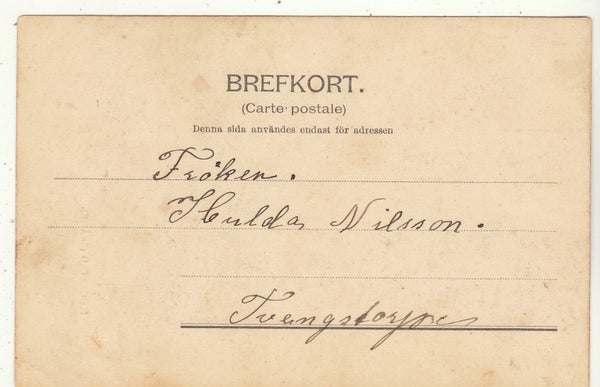 BREFKORT.
(Carte postale)
Denna sida användes endast för adressen
Fröken.
Hulda Nilsson.